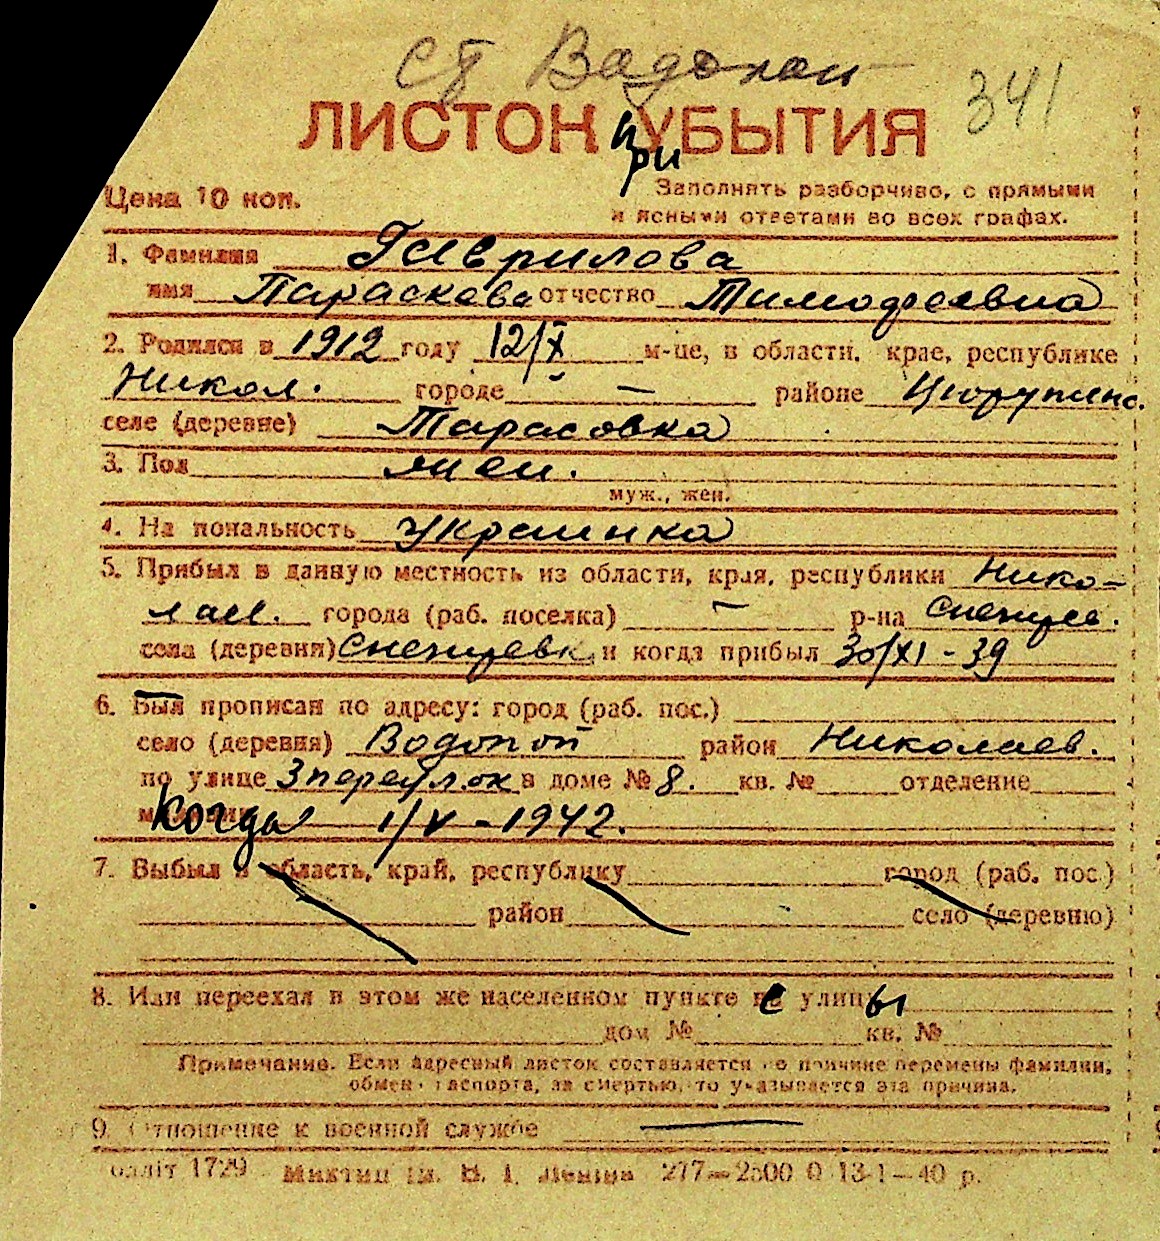 ст Водопой
341
ЛИСТОК УБЫТИЯ
при
Цена 10 коп.
Заполнять разборчиво, с прямыми
и ясными ответами во всех графах.
1. Фамилия Гаврилова
имя Параскева отчество Тимофеевна
2. Родился в 1912 году 12/X м-це, в области, крае, республике
Никол. городе — районе Цюрупинс.
селе (деревне) Тарасовка
3. Пол жен.
муж., жен.
4. Национальность украинка
5. Прибыл в данную местность из области, края, республики Нико-
лаев. города (раб. поселка) — р-на Снегирев.
села (деревни) Снегиревк. и когда прибыл 30/XI - 39
6. Был прописан по адресу: город (раб. пос.)
село (деревня) Водопой район Николаев.
по улице 3 переулок в доме № 8. кв. № отделение
Когда 1/V - 1942.
7. Выбыл в область, край, республику город (раб. пос.)
район село (деревню)
8. Или переехал в этом же населенном пункте с улицы
дом № кв. №
Примечание. Если адресный листок составляется по причине перемены фамилии,
обмена паспорта, за смертью, то указывается эта причина.
9. Отношение к военной службе —
обліт 1729 ім. В. І. Леніна 277—2500 0 13-1—40 р.